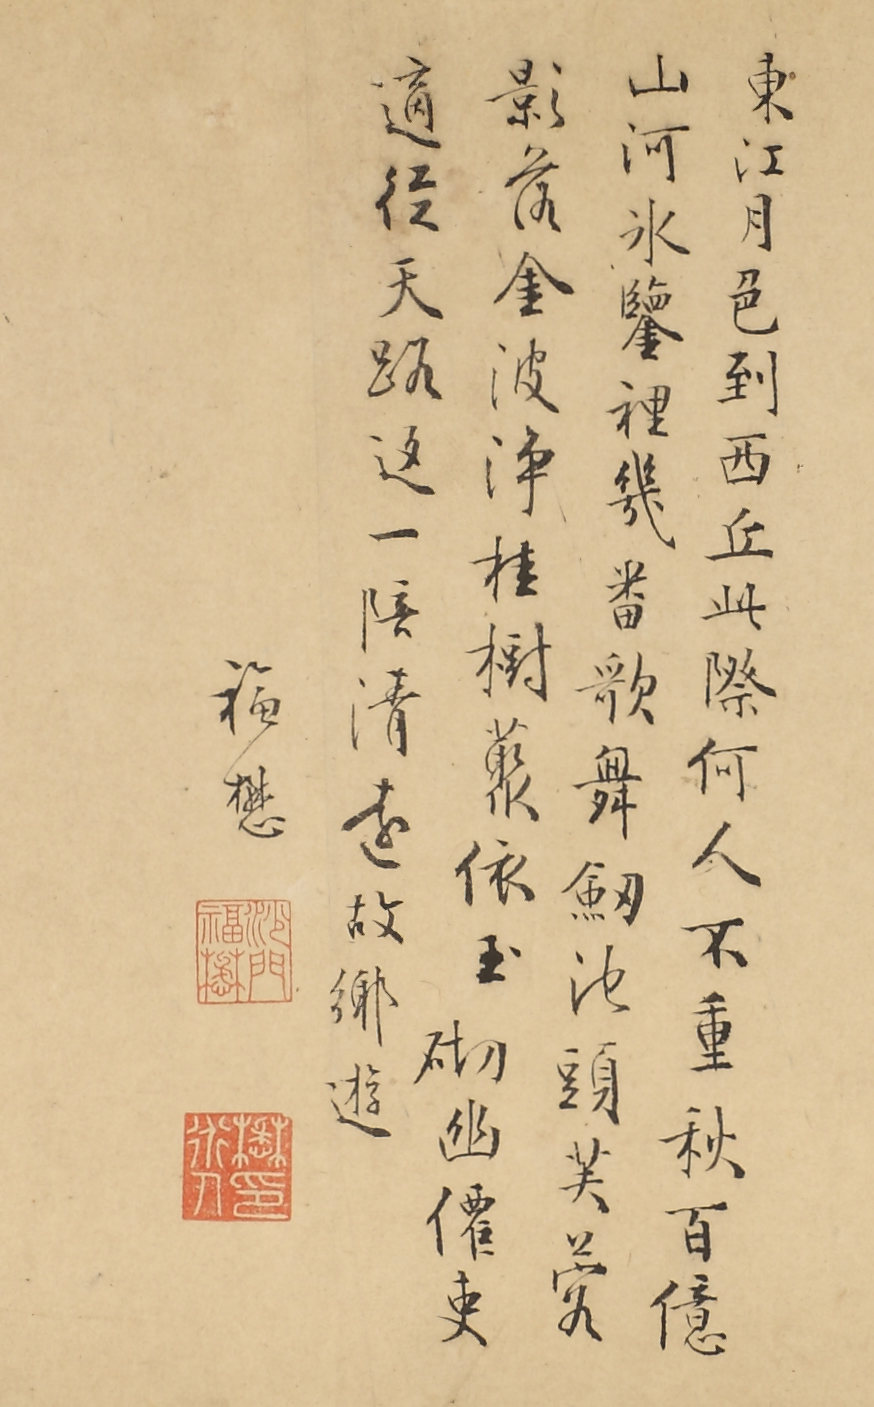 東江月色到西丘此際何人不重秋百億
山河氷鑒裡幾番歌舞劔池頭芙蓉
影落金波淨桂樹叢依玉砌幽僊吏
適從天路迥一陪清遠故鄉遊
福懋
沙門福懋